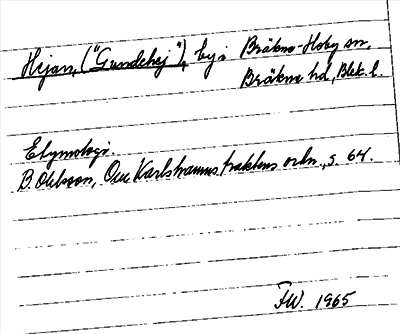 Hejan, ("Gundehej"), by i Bräkne-Hoby sn,
Bräkne hd, Blek. l.
Etymologi.
B. Ohlsson, Om Karlshamnstraktens ortn., s. 64.
FW. 1965